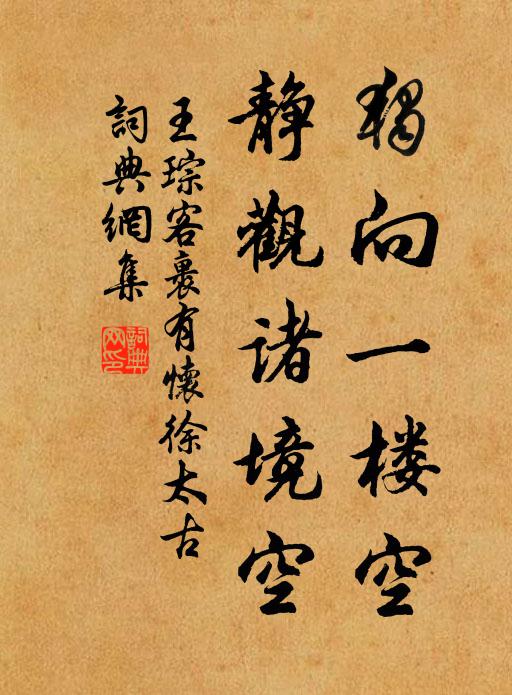 獨向一楼空
静觀诸境空
王琮客裹有懷徐太古
詞典網集
詞典網印